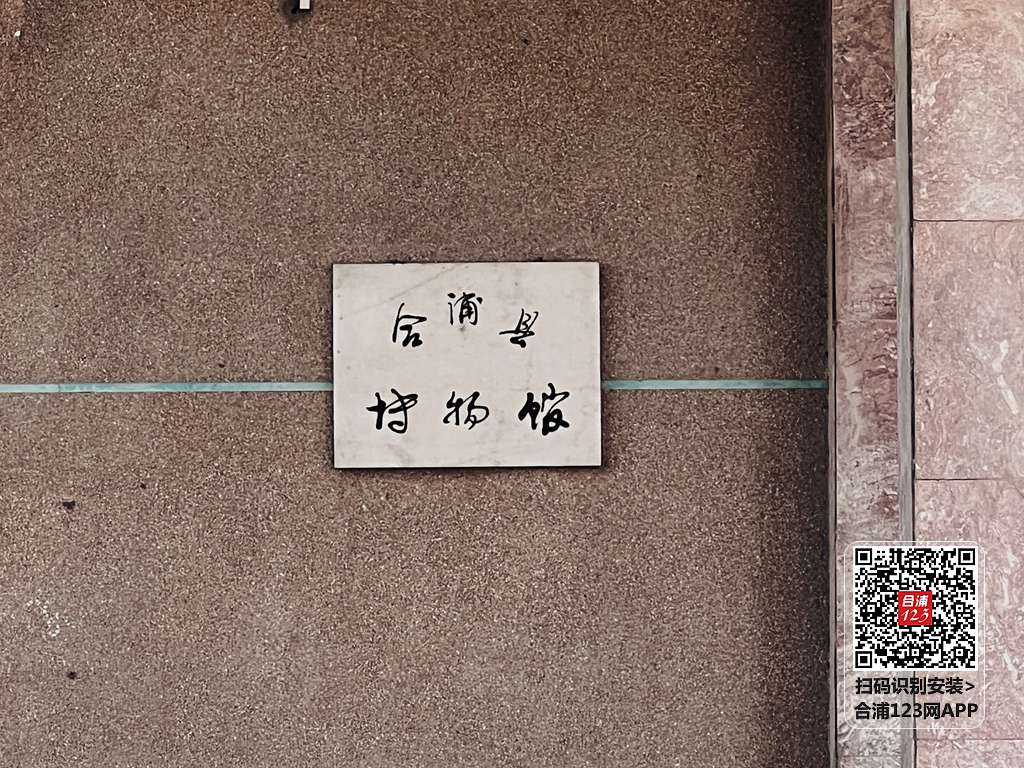 合浦县
博物馆
目浦
123
扫码识别安装>
合浦123网APP